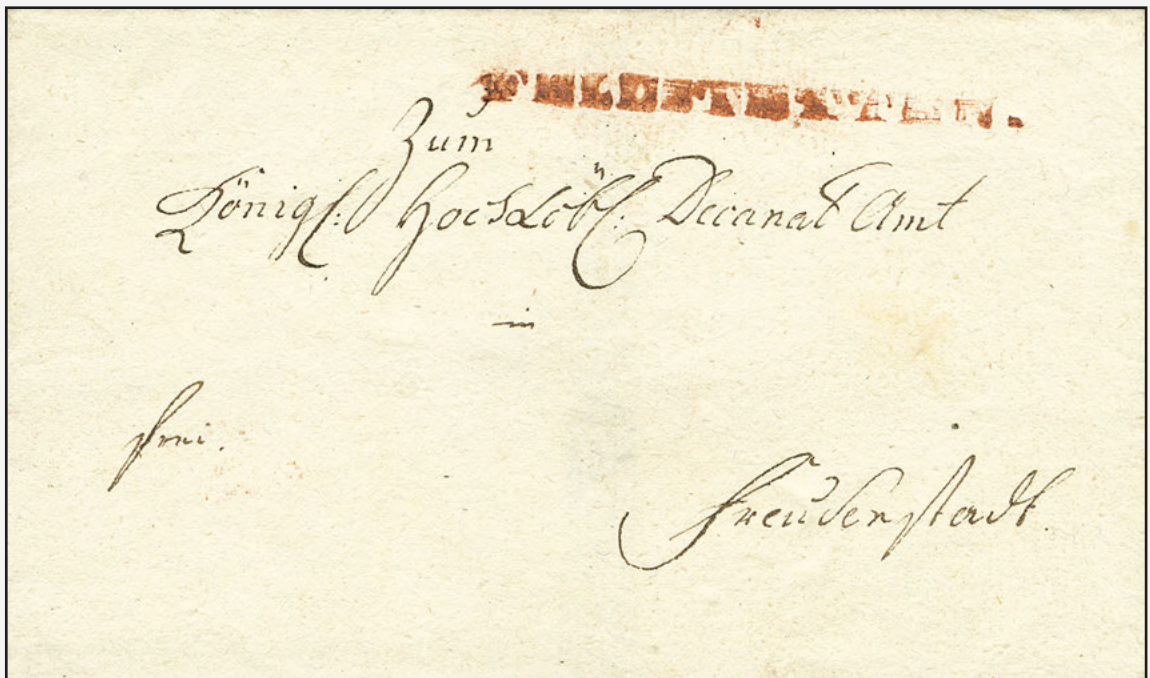 FELDSTETTEN.
Zum
Königl: HochLöbl: Decanat Amt
in
frei.
Freudenstadt